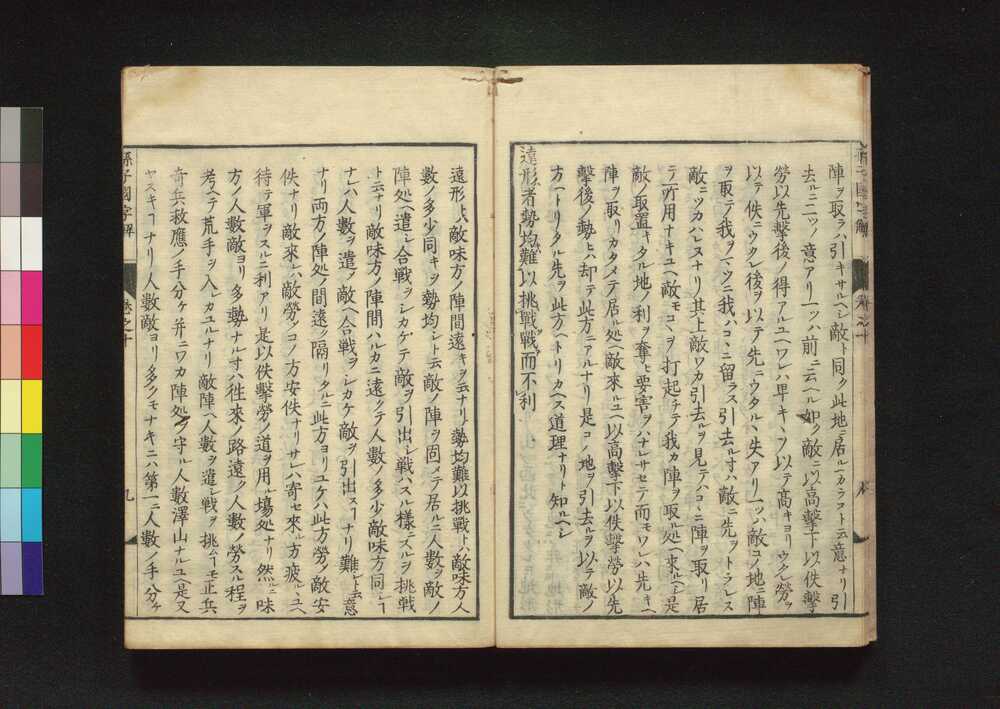 陣ヲ取ラハ引キサルヘシ敵ト同ク此地ニ居ルヘカラストニ云意ナリ引
去ルニ二ツノ意アリ一ツハ前ニ云ヘル如ク敵ニ以高擊下以佚擊
勞以先擊後ノ得アルユヘワレハ卑キヲ以テ高キヨリウケ勞ヲ
以テ佚ニウケ後ヲ以テ先ニウタルヽ失アリ一ツハ敵コノ地ニ陣
ヲ取テ我ヲマツニ我ハコヽニ留ラス引去ル寸ハ敵ニ先ヲトラレス
敵ニツカハレスナリ其上敵ワカ引去ルヲ見テハコヽニ陣ヲ取リ居
テ所用ナキユヘ敵モコヽヲ打起チテ我カ陣ヲ取ル処ヘ來ルヘシ是
敵ノ取置キタル地ノ利ヲ奪ヒ要害ヲハナレサセテ而モワレハ先キヘ
陣ヲ取リカタメテ居ル処ヘ敵來ルユヘ以高擊下以佚擊勞以先
擊後ノ勢ヒハ却テ此方ニアルナリ是コノ地ヲ引去ルヲ以テ敵ノ
方ヘトリタル先ヲ此方ヘトリカヘス道理ナリト知ルヘシ
遠形者勢均難以挑戰戰而不利
遠形トハ敵味方ノ陣間遠キヲ云ナリ勢均難以挑戰トハ敵味方人
數ノ多少同キヲ勢均シト云敵ノ陣ヲ固メテ居ルニ人數ヲ敵ノ
陣処ヘ遣シ合戰ヲシカケテ敵ヲ引出シ戰ハスル樣ニスルヲ挑戰
ト云ナリ敵味方ノ陣間ハルカニ遠クテ人數ノ多少敵味方同シ
ナレハ人數ヲ遣シ敵ヘ合戰ヲシカケ敵ヲ引出スヿナリ難シト云意
ナリ両方ノ陣処ノ間遠ク隔リタルニ此方ヨリユケハ此方勞シ敵安
佚ナリ敵來レハ敵勞シコノ方安佚ナリサレハ寄セ來ル方疲ルヽユヘ
待テ軍ヲスルニ利アリ是以佚擊勞ノ道ヲ用ル塲処ナリ然ルニ味
方ノ人數敵ヨリ多勢ナル寸ハ徃來ノ路遠ク人數ノ勞スル程ヲ
考ヘテ荒手ヲ入レカユルナリ敵陣ヘ人數ヲ遣シ戰ヲ挑ムモ正兵
奇兵救應ノ手分ケ并ニワカ陣処ヲ守ル人數澤山ナルユヘ是又
ヤスキヿナリ人數敵ヨリ多クモナキニハ第一ニ人數ノ手分ケ
孫子國字解
卷之十
九